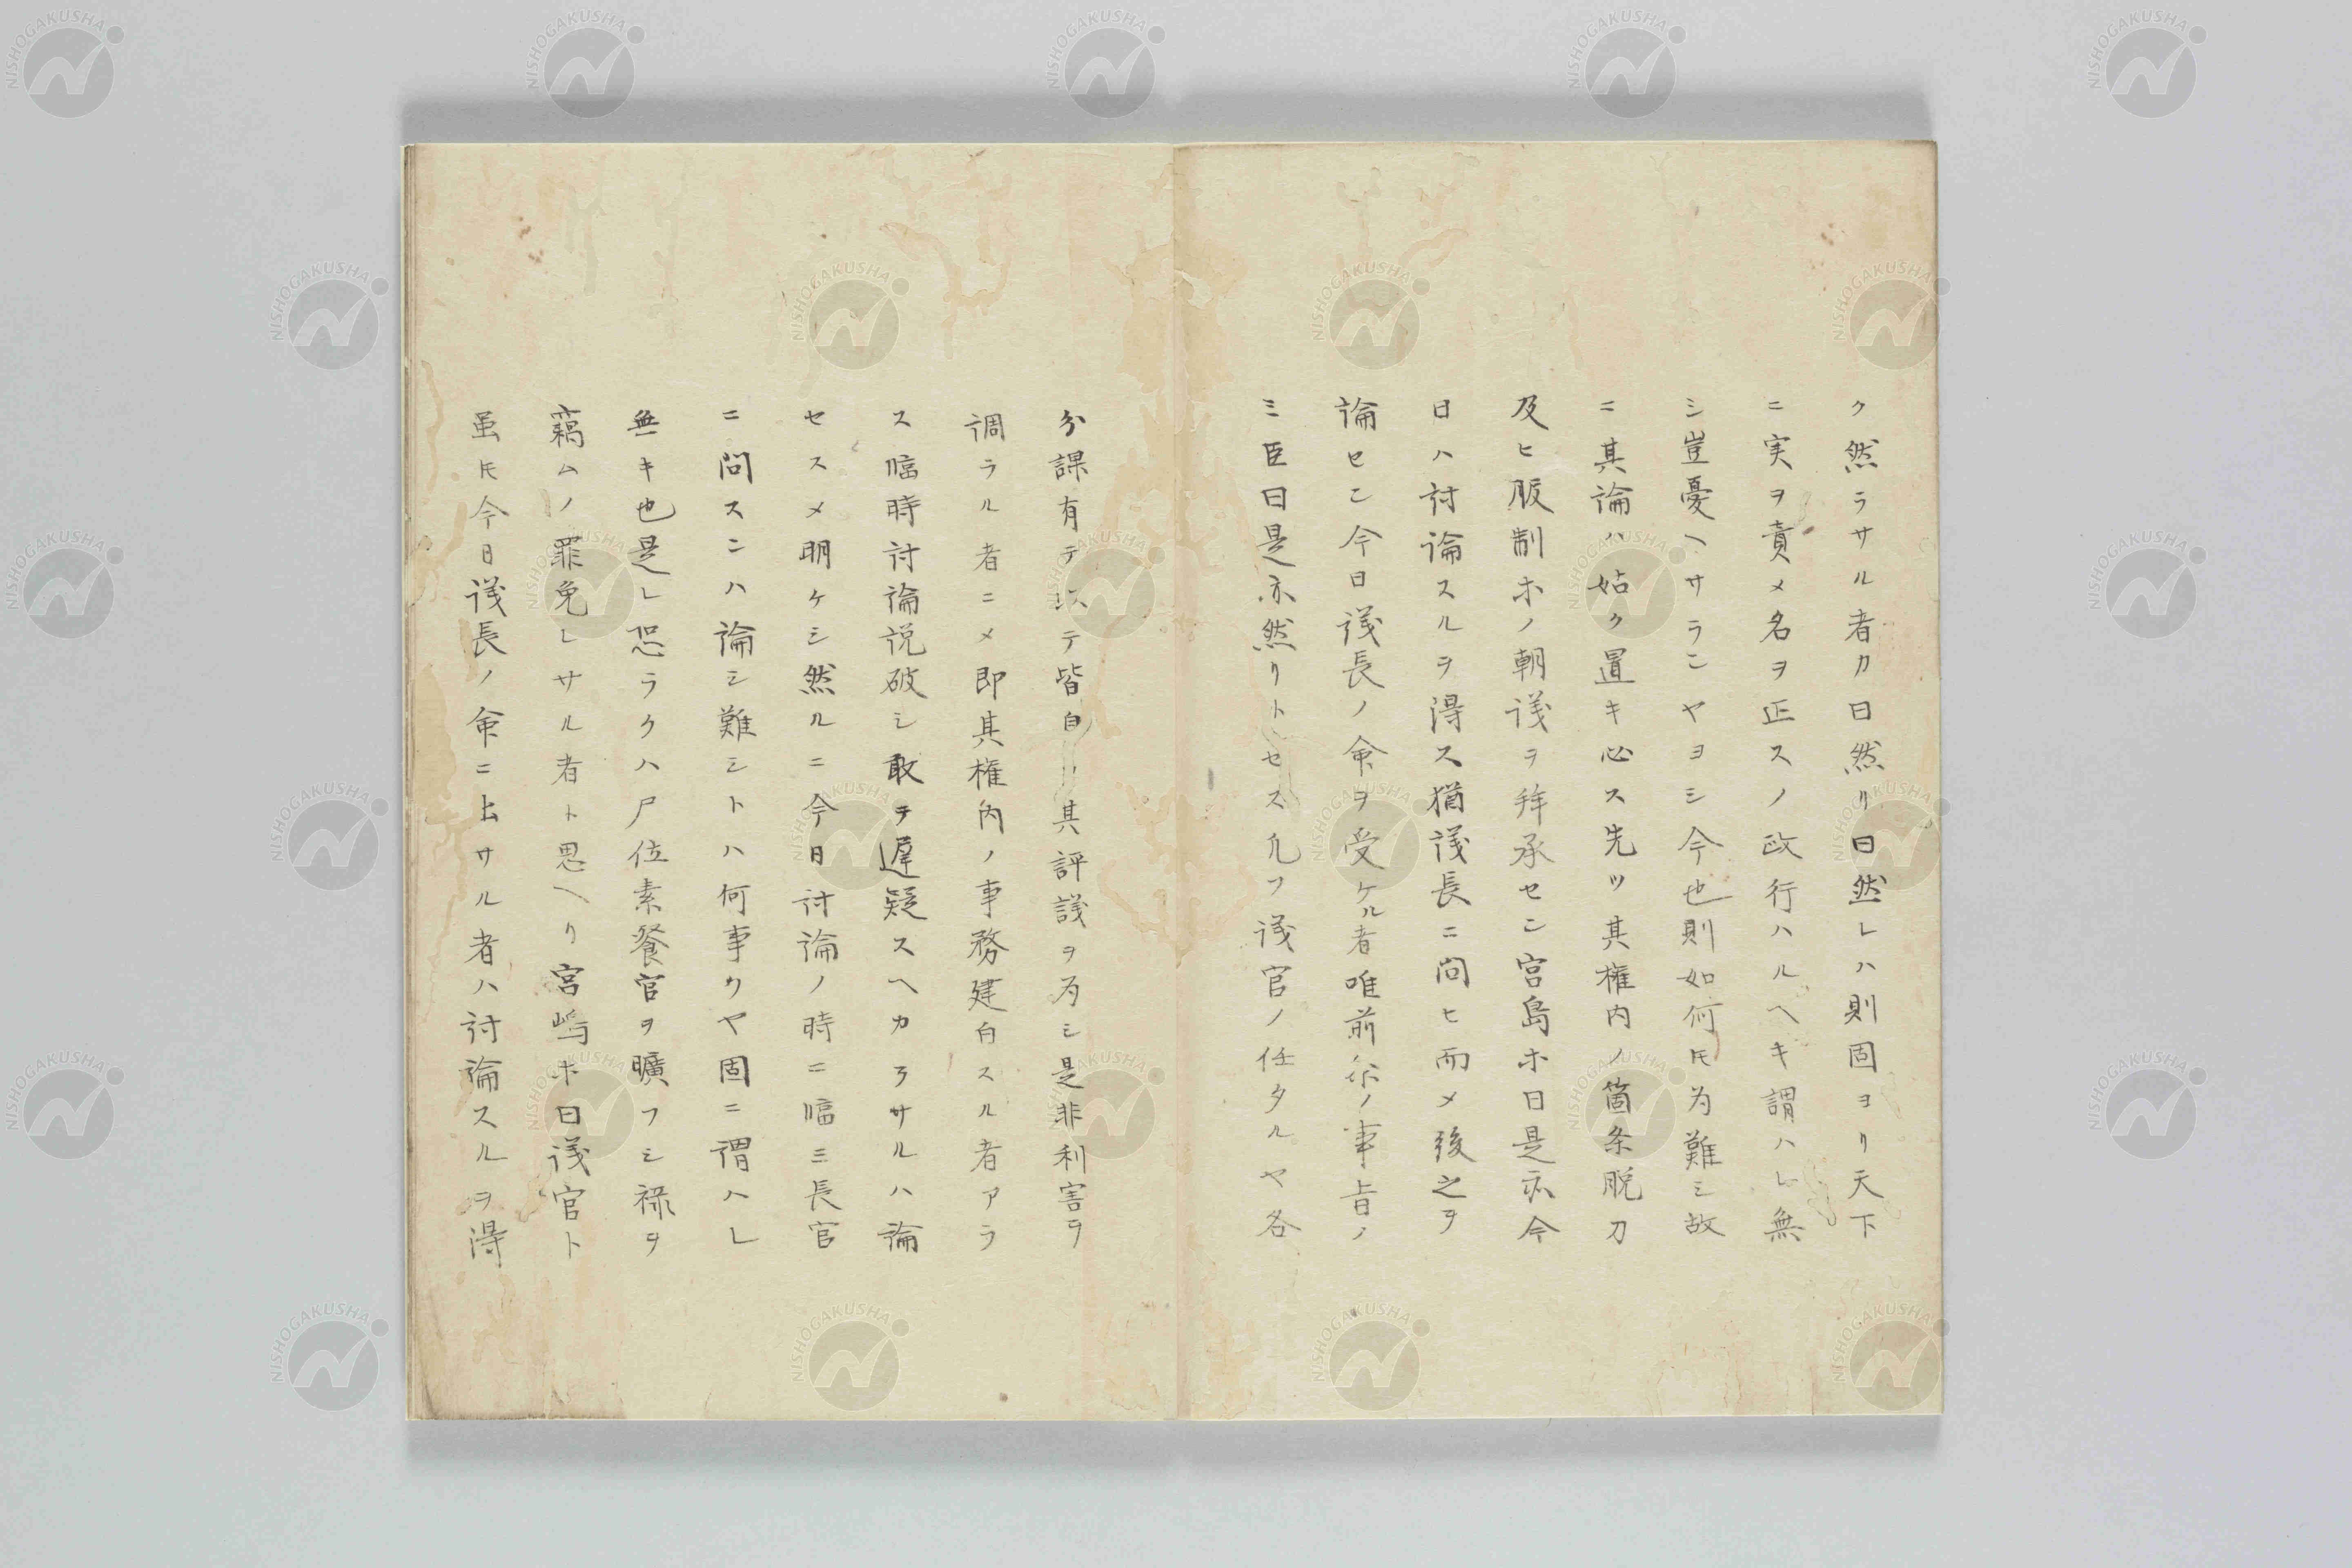 ク然ラサル者カ曰然リ曰然レハ則固ヨリ天下
ニ実ヲ責メ名ヲ正スノ政行ハルヘキ謂ハレ無
シ豈憂ヘサランヤヨシ今也則如何𪜈為難シ故
ニ其論ハ姑ク置キ必ス先ツ其権内ノ箇条脱刀
及ヒ服制ホノ朝議ヲ拜承セン宮島ホ曰是亦今
日ハ討論スルヲ得ス猶議長ニ問ヒ而メ後之ヲ
論セン今日議長ノ命ヲ受ケル者唯前条ノ事旨ノ
ミ臣曰是亦然リトセス凢フ議官ノ任タルヤ各
分課有テ以テ皆自ハ其評議ヲ为シ是非利害ヲ
調ラル者ニメ即其権内ノ事務建白スル者アラ
ス臨時討論説破シ敢テ遅疑スヘカラサルハ論
セスメ明ケシ然ルニ今日討論ノ時ニ臨ミ長官
ニ問スンハ論シ難シトハ何事クヤ固ニ謂ハレ
無キ也是レ恐ラクハ尸位素餐官ヲ曠フシ禄ヲ
竊ムノ罪免レサル者ト思ヘリ宮嶋ホ曰議官ト
虽𪜈今日議長ノ命ニ出サル者ハ討論スルヲ得
NISHOGAKUSHA